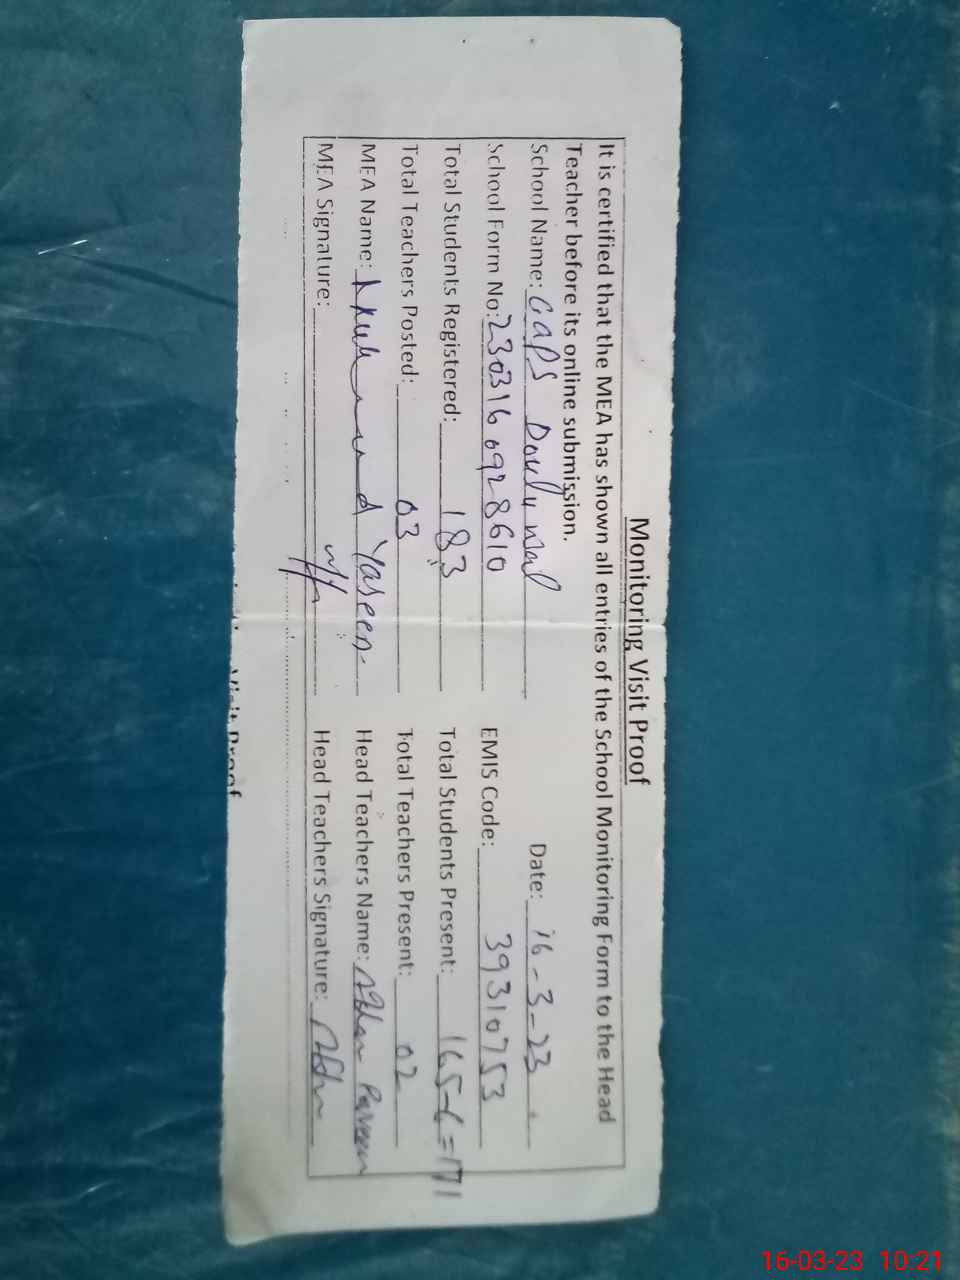 Monitoring Visit Proof
It is certified that the MEA has shown all entries of the School Monitoring Form to the Head
Teacher before its online submission.
School Name: GGPS Douly Wal Date: 16-3-23
School Form No: 2303160928610 EMIS Code: 39310753
Total Students Registered: 183 Total Students Present: 165-6=171
Total Teachers Posted: 03 Total Teachers Present: 02
MEA Name: Yaseen Head Teachers Name: Parveen
MEA Signature: Head Teachers Signature:
Visit Proof
16-03-23 10:21